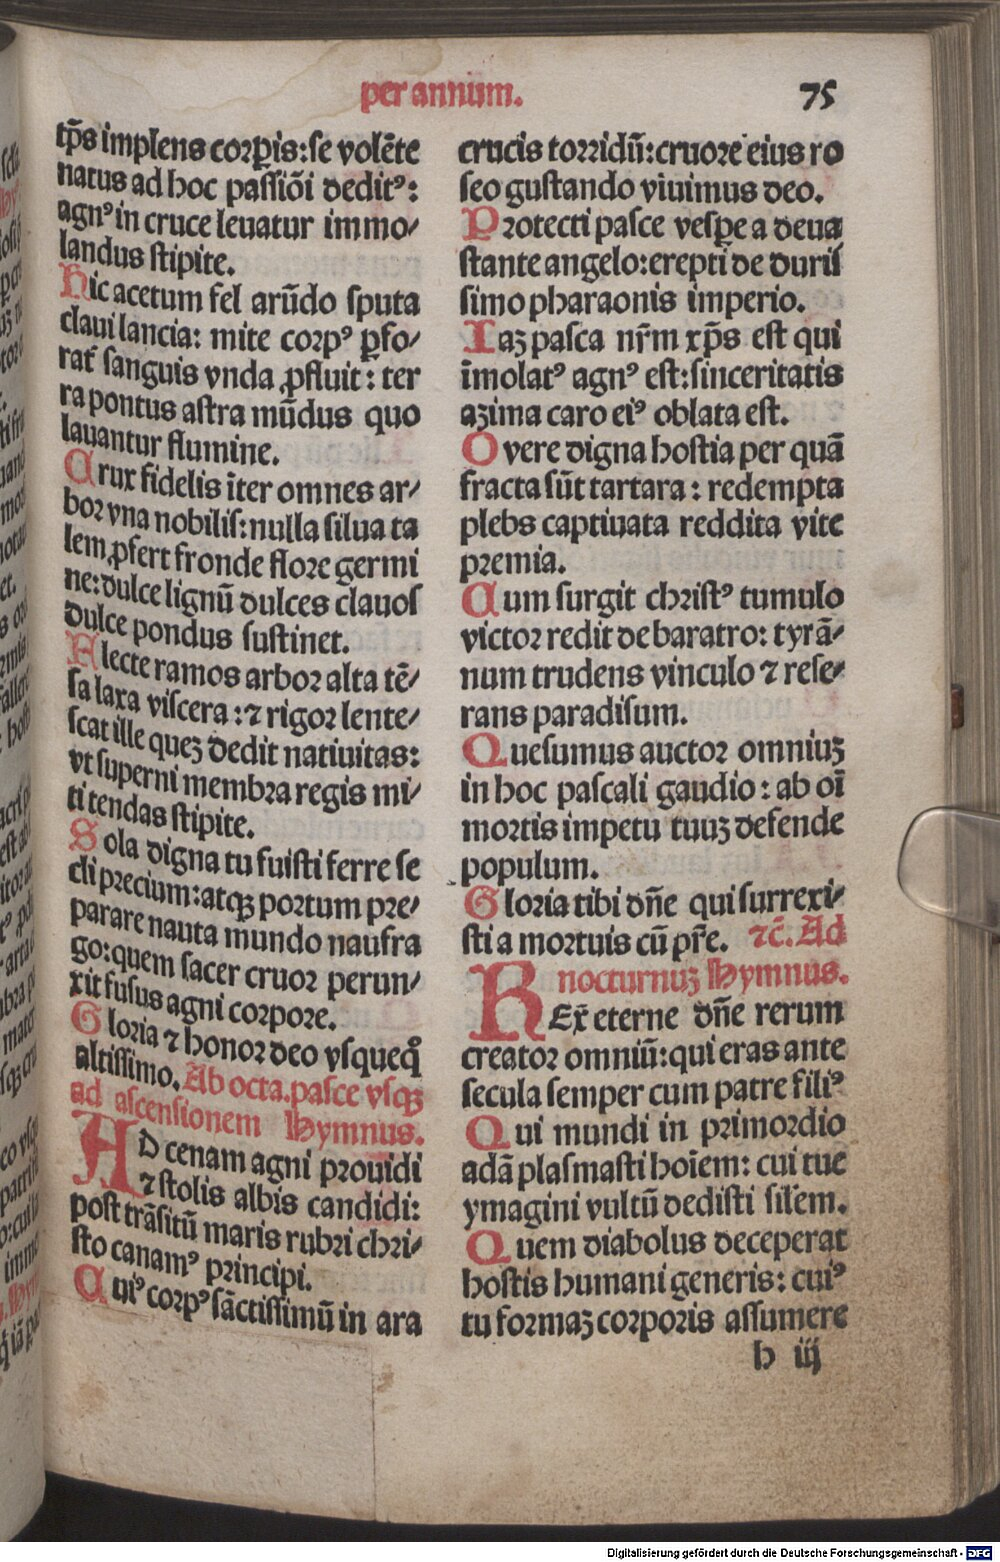 per annum.
75
tp̄s implens corꝑis: se volēte
natus ad hoc passiōi deditꝰ:
agnꝰ in cruce leuatur immo/
landus stipite.
Hic acetum fel arūdo sputa
claui lancia: mite corpꝰ ꝑfo/
rat᷑ sanguis vnda ꝓfluit: ter
ra pontus astra mūdus quo
lauantur flumine.
Crux fidelis īter omnes ar/
bor vna nobilis: nulla silua ta
lem ꝓfert fronde flore germi
ne: dulce lignū dulces clauos
dulce pondus sustinet.
Flecte ramos arbor alta tē/
sa laxa viscera: ⁊ rigor lente/
scat ille queꝫ dedit natiuitas:
vt superni membra regis mi/
ti tendas stipite.
Sola digna tu fuisti ferre se
cli precium: atqꝫ portum pre/
parare nauta mundo naufra
go: quem sacer cruor perun/
xit fusus agni corpore.
Gloria ⁊ honor deo vsqueq̊
altissimo. Ab octa. pasce vsqꝫ
ad ascensionem Hymnus.
AD cenam agni prouidi
⁊ stolis albis candidi:
post trāsitū maris rubri chri/
sto canamꝰ principi.
Cuiꝰ corpꝰ sāctissimū in ara
crucis torridū: cruore eius ro
seo gustando viuimus deo.
Protecti pasce vesꝑe a deua
stante angelo: erepti de duris
simo pharaonis imperio.
Iaꝫ pasca nr̄m xp̄s est qui
īmolatꝰ agnꝰ est: sinceritatis
azima caro eiꝰ oblata est.
O vere digna hostia per quā
fracta sūt tartara: redempta
plebs captiuata reddita vite
premia.
Cum surgit christꝰ tumulo
victor redit de baratro: tyrā/
num trudens vinculo ⁊ rese/
rans paradisum.
Quesumus auctor omniuꝫ
in hoc pascali gaudio: ab oī
mortis impetu tuuꝫ defende
populum.
Gloria tibi dn̄e qui surrexi/
sti a mortuis cū pr̄e. ⁊c̄. Ad
nocturnuꝫ Hymnus.
REx̄ eterne dn̄e rerum
creator omniū: qui eras ante
secula semper cum patre filiꝰ
Qui mundi in primordio
adā plasmasti hoīem: cui tue
ymagini vultū dedisti sil̄em.
Quem diabolus deceperat
hostis humani generis: cuiꝰ
tu formaꝫ corporis assumere
h iij
Digitalisierung gefördert durch die Deutsche Forschungsgemeinschaft - DFG